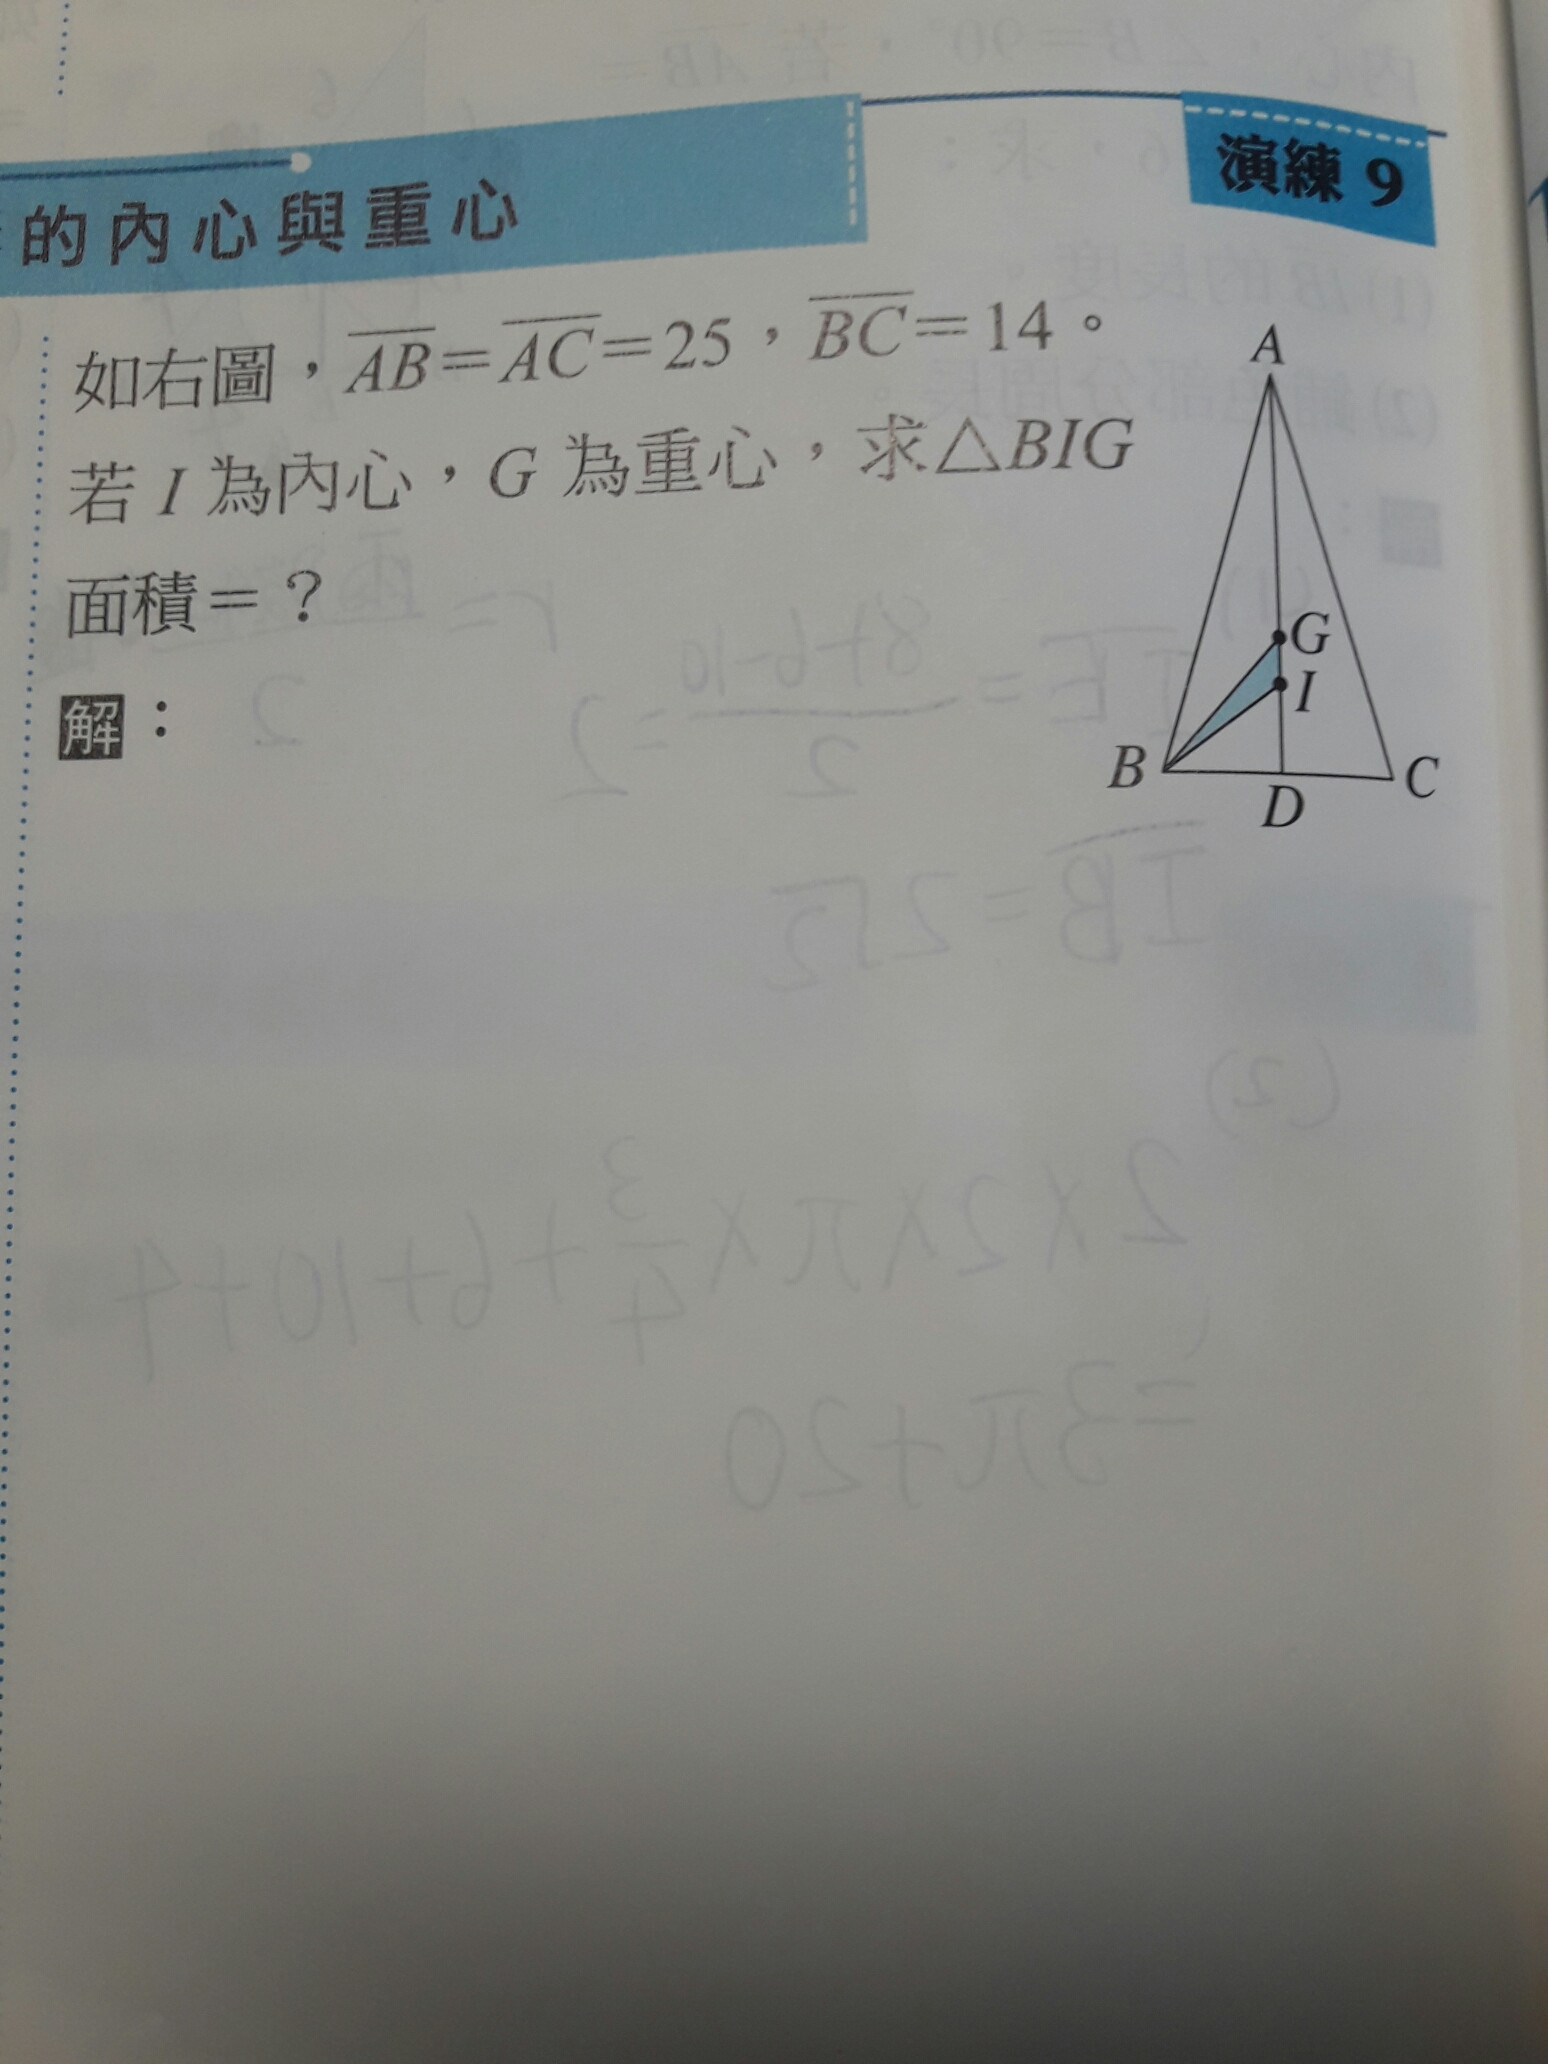 的內心與重心
演練 9
如右圖，AB=AC=25，BC=14。
若 I 為內心，G 為重心，求△BIG
面積=？
解：
A
G
I
B
D
C